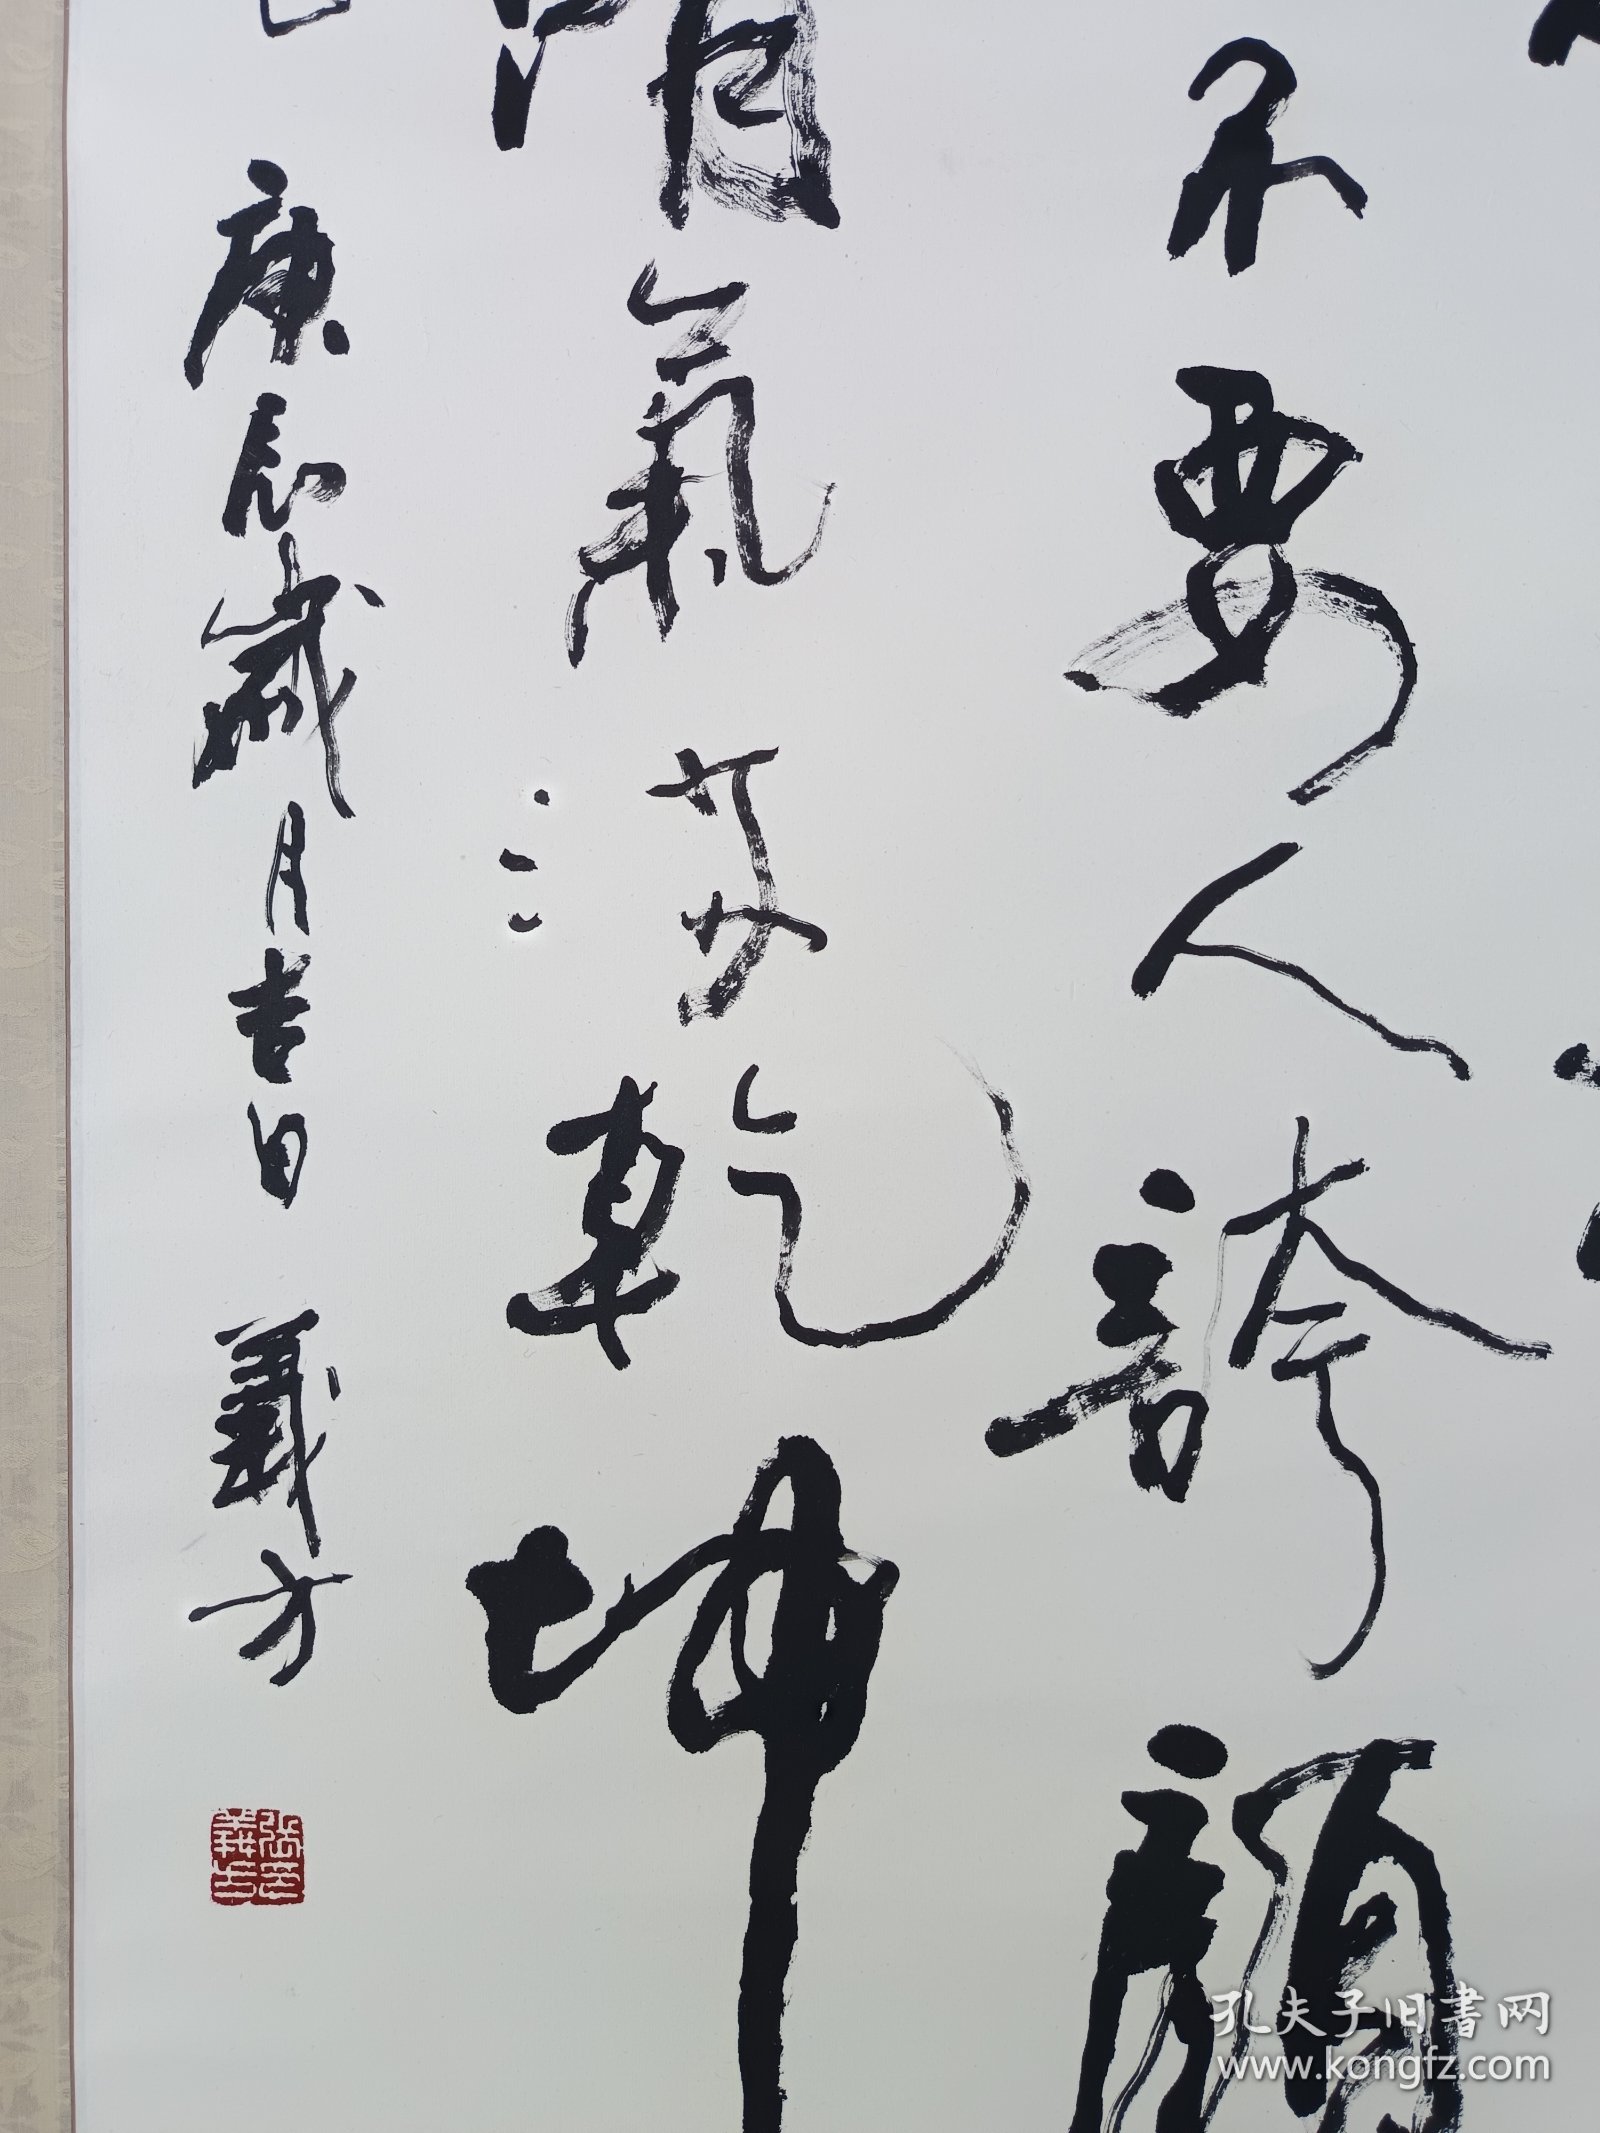 不要人誇顔
清氣滿乾坤
庚辰歲月吉日 義方
張義方
孔夫子旧書网
www.kongfz.com